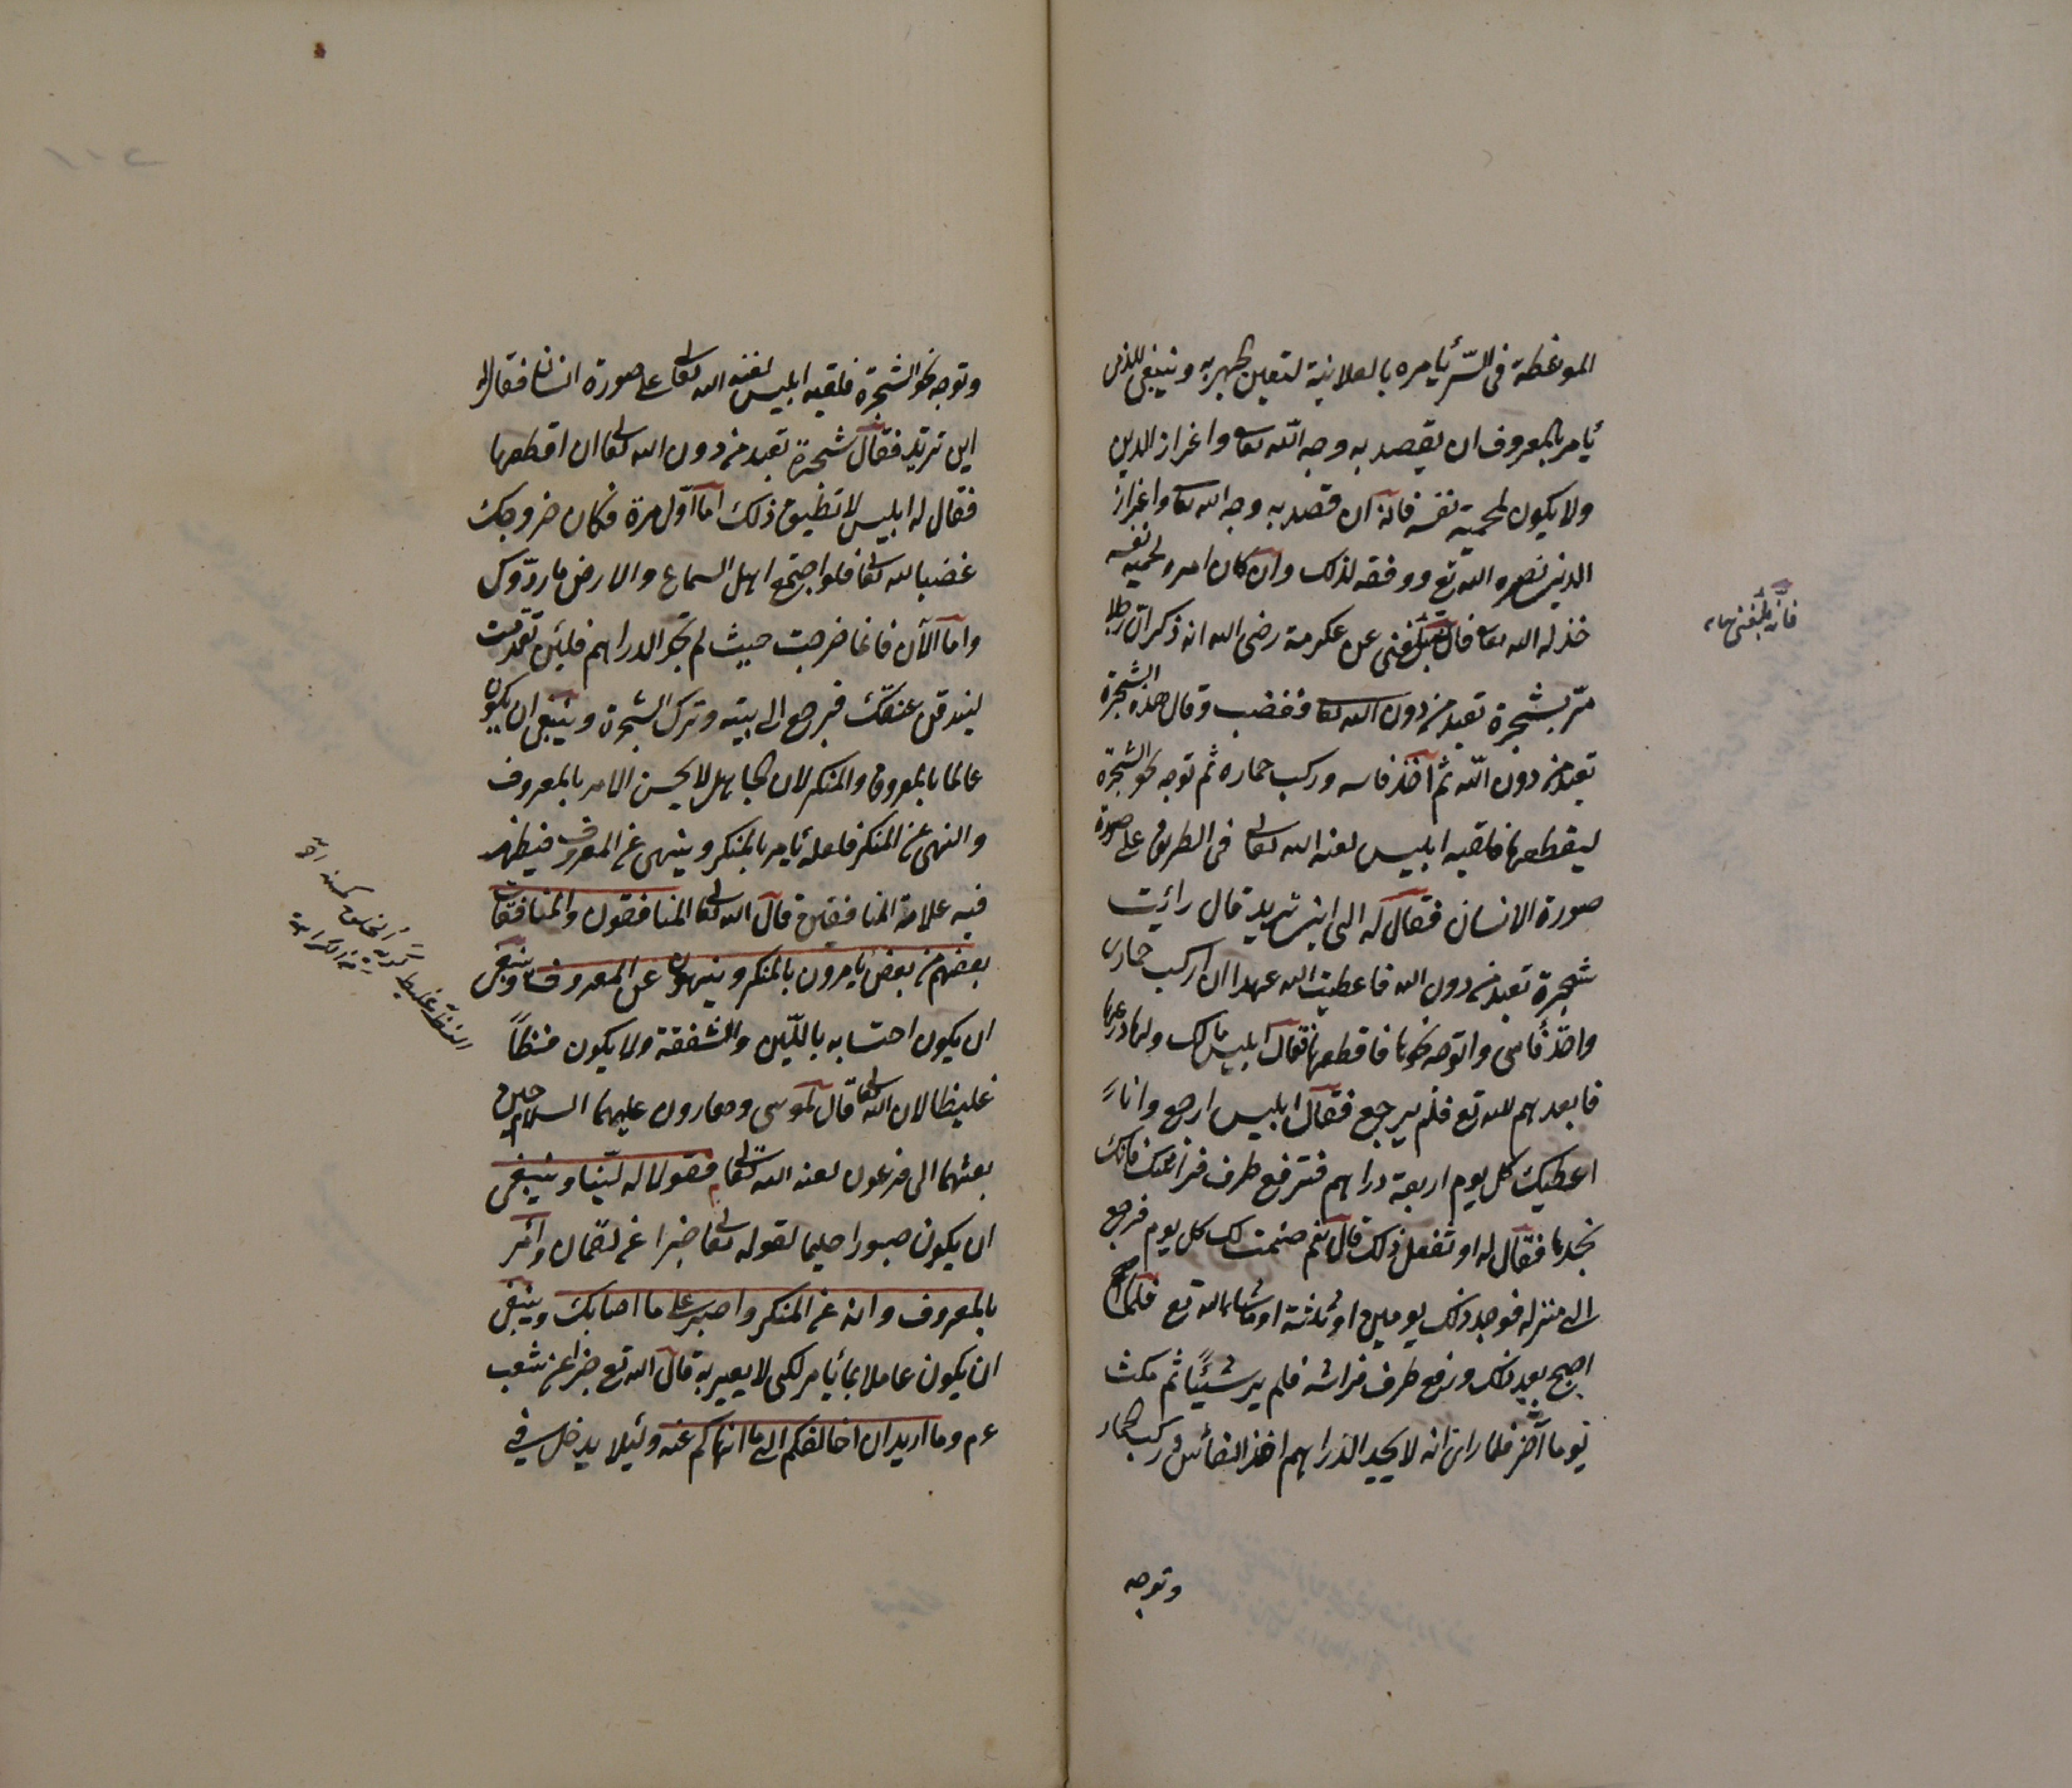 الموعظة فى السّر يأمره بالعلانية لتعين الجهر به وينبغى للذى
يأمر بالمعروف ان يقصد به وجه الله تعا واعزاز الدين
ولا يكون لحمية نفسه فانه ان قصد به وجه الله تعا واعزاز
الدين نصره الله تع ووفقه لذلك وان كان امره لحمية نفسه
خذله الله تعا قال بلغنى عن عكرمة رضى الله انه ذكر ان رجلا
مرّ بشجرة تعبد من دون الله تعا فغضب وقال هذه الشجرة
تعبد من دون الله ثم اخذ فاسه وركب حماره ثم توجه نحو الشجرة
ليقطعها فلقيه ابليس لعنه الله تعالى فى الطريق على صورة
صورة الانسان فقال له الى اين تريد قال رأيت
شجرة تعبد من دون الله فاعطيت الله عهدا ان اركب حمارى
واخذ فأسى واتوجه نحوها فاقطعها فقال ابليس مالك ولها دعها
فابعدهم الله تع فلم يرجع فقال ابليس ارجع وانا
اعطيك كل يوم اربعة دراهم فترفع طرف فراشك فانك
تجدها فقال له او تفعل ذلك قال نعم ضمنت لك كل يوم فرجع
الى منزله فوجد ذلك يومين او ثلثة او ماشاء الله تع فلما اصبح
اصبح بعد ذلك ورفع طرف فراشه فلم ير شيئًا ثم مكث
يوما آخر فلما راى انه لا يجد الدراهم اخذ الفأس وركب الحمار
وتوجه
وتوجه نحو الشجرة فلقيه ابليس لعنه الله تعالى على صورة انسان فقال له
اين تريد فقال شجرة تعبد من دون الله تعالى ان اقطعها
فقال له ابليس لا تطيق ذلك اما اول مرة فكان خروجك
غضبا لله تعالى فلو اجتمع اهل السماء والارض ما ردّوك
واما الآن فانما خرجت حيث لم تجد الدراهم فلئن تقدمت
ليندقن عنقك فرجع الى بيته وترك الشجرة وينبغى ان يكون
عالما بالمعروف والمنكر لان الجاهل لا يحسن الامر بالمعروف
والنهى عن المنكر فلعله يأمر بالمنكر وينهى عن المعروف فيظهر
فيه علامة المنافقين قال الله تعالى المنافقون والمنافقات
بعضهم من بعض يأمرون بالمنكر وينهون عن المعروف وينبغى
ان يكون احتسابه باللّين والشفقة ولا يكون فظاً
غليظا لان الله تعالى قال لموسى وهارون عليهما السلام حين
بعثهما الى فرعون لعنه الله تعالى فقولا له ليّنا وينبغى
ان يكون صبورا حليما لقوله تعالى خبرا عن لقمان وأمر
بالمعروف وانه عن المنكر واصبر على ما اصابك وينبغى
ان يكون عاملا بما يأمر لكى لا يعير به قال الله تع خبرا عن شعيب
ءم وما اريد ان اخالفكم الى ما انهاكم عنه ولئلا يدخل فى